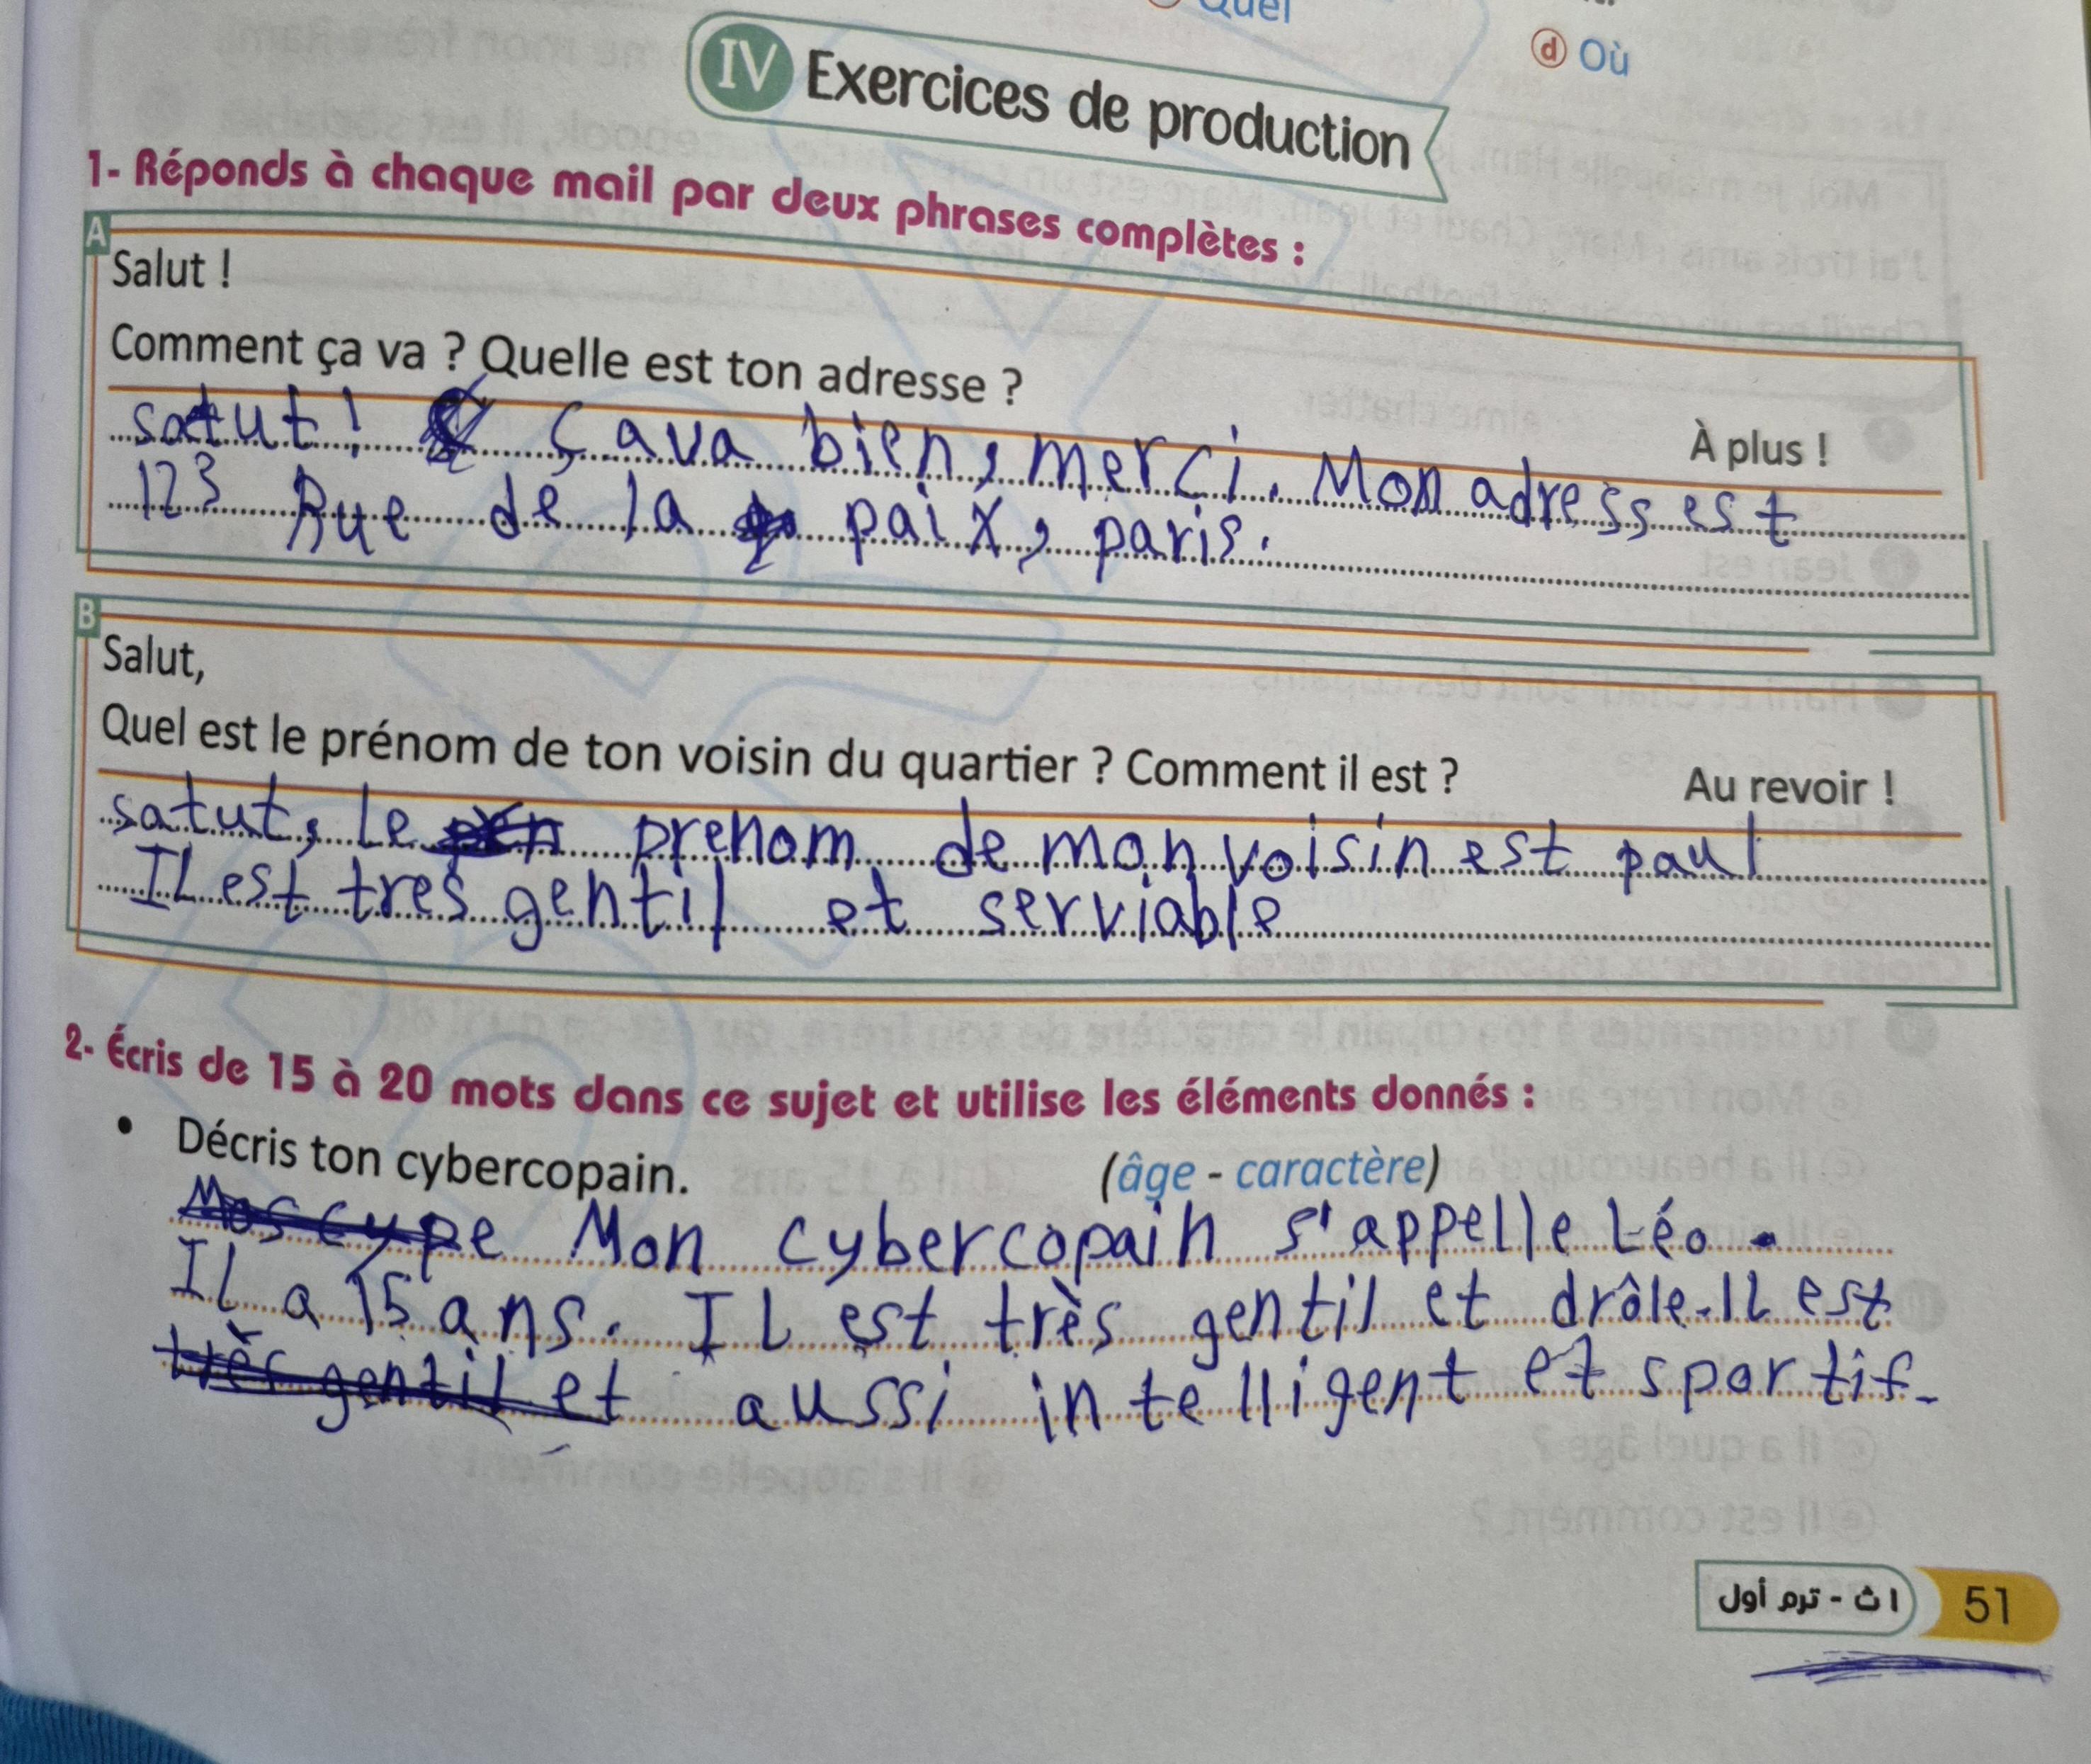 Quel
ⓓ Où
IV Exercices de production
1- Réponds à chaque mail par deux phrases complètes :
A
Salut !
Comment ça va ? Quelle est ton adresse ?
À plus !
satut! Ç ava bien, merci. Mon adress est
123 Rue de la paix, paris.
B
Salut,
Quel est le prénom de ton voisin du quartier ? Comment il est ?
Au revoir !
satut, Le prenom de mon voisin est paul
IL est tres gentil et serviable
2- Écris de 15 à 20 mots dans ce sujet et utilise les éléments donnés :
• Décris ton cybercopain. (âge - caractère)
Mon cybercopain s'appelle Léo.
IL a 15 ans. IL est très gentil et drôle. IL est
très gentil et aussi intelligent et sportif.
١ ث - ترم أول
51